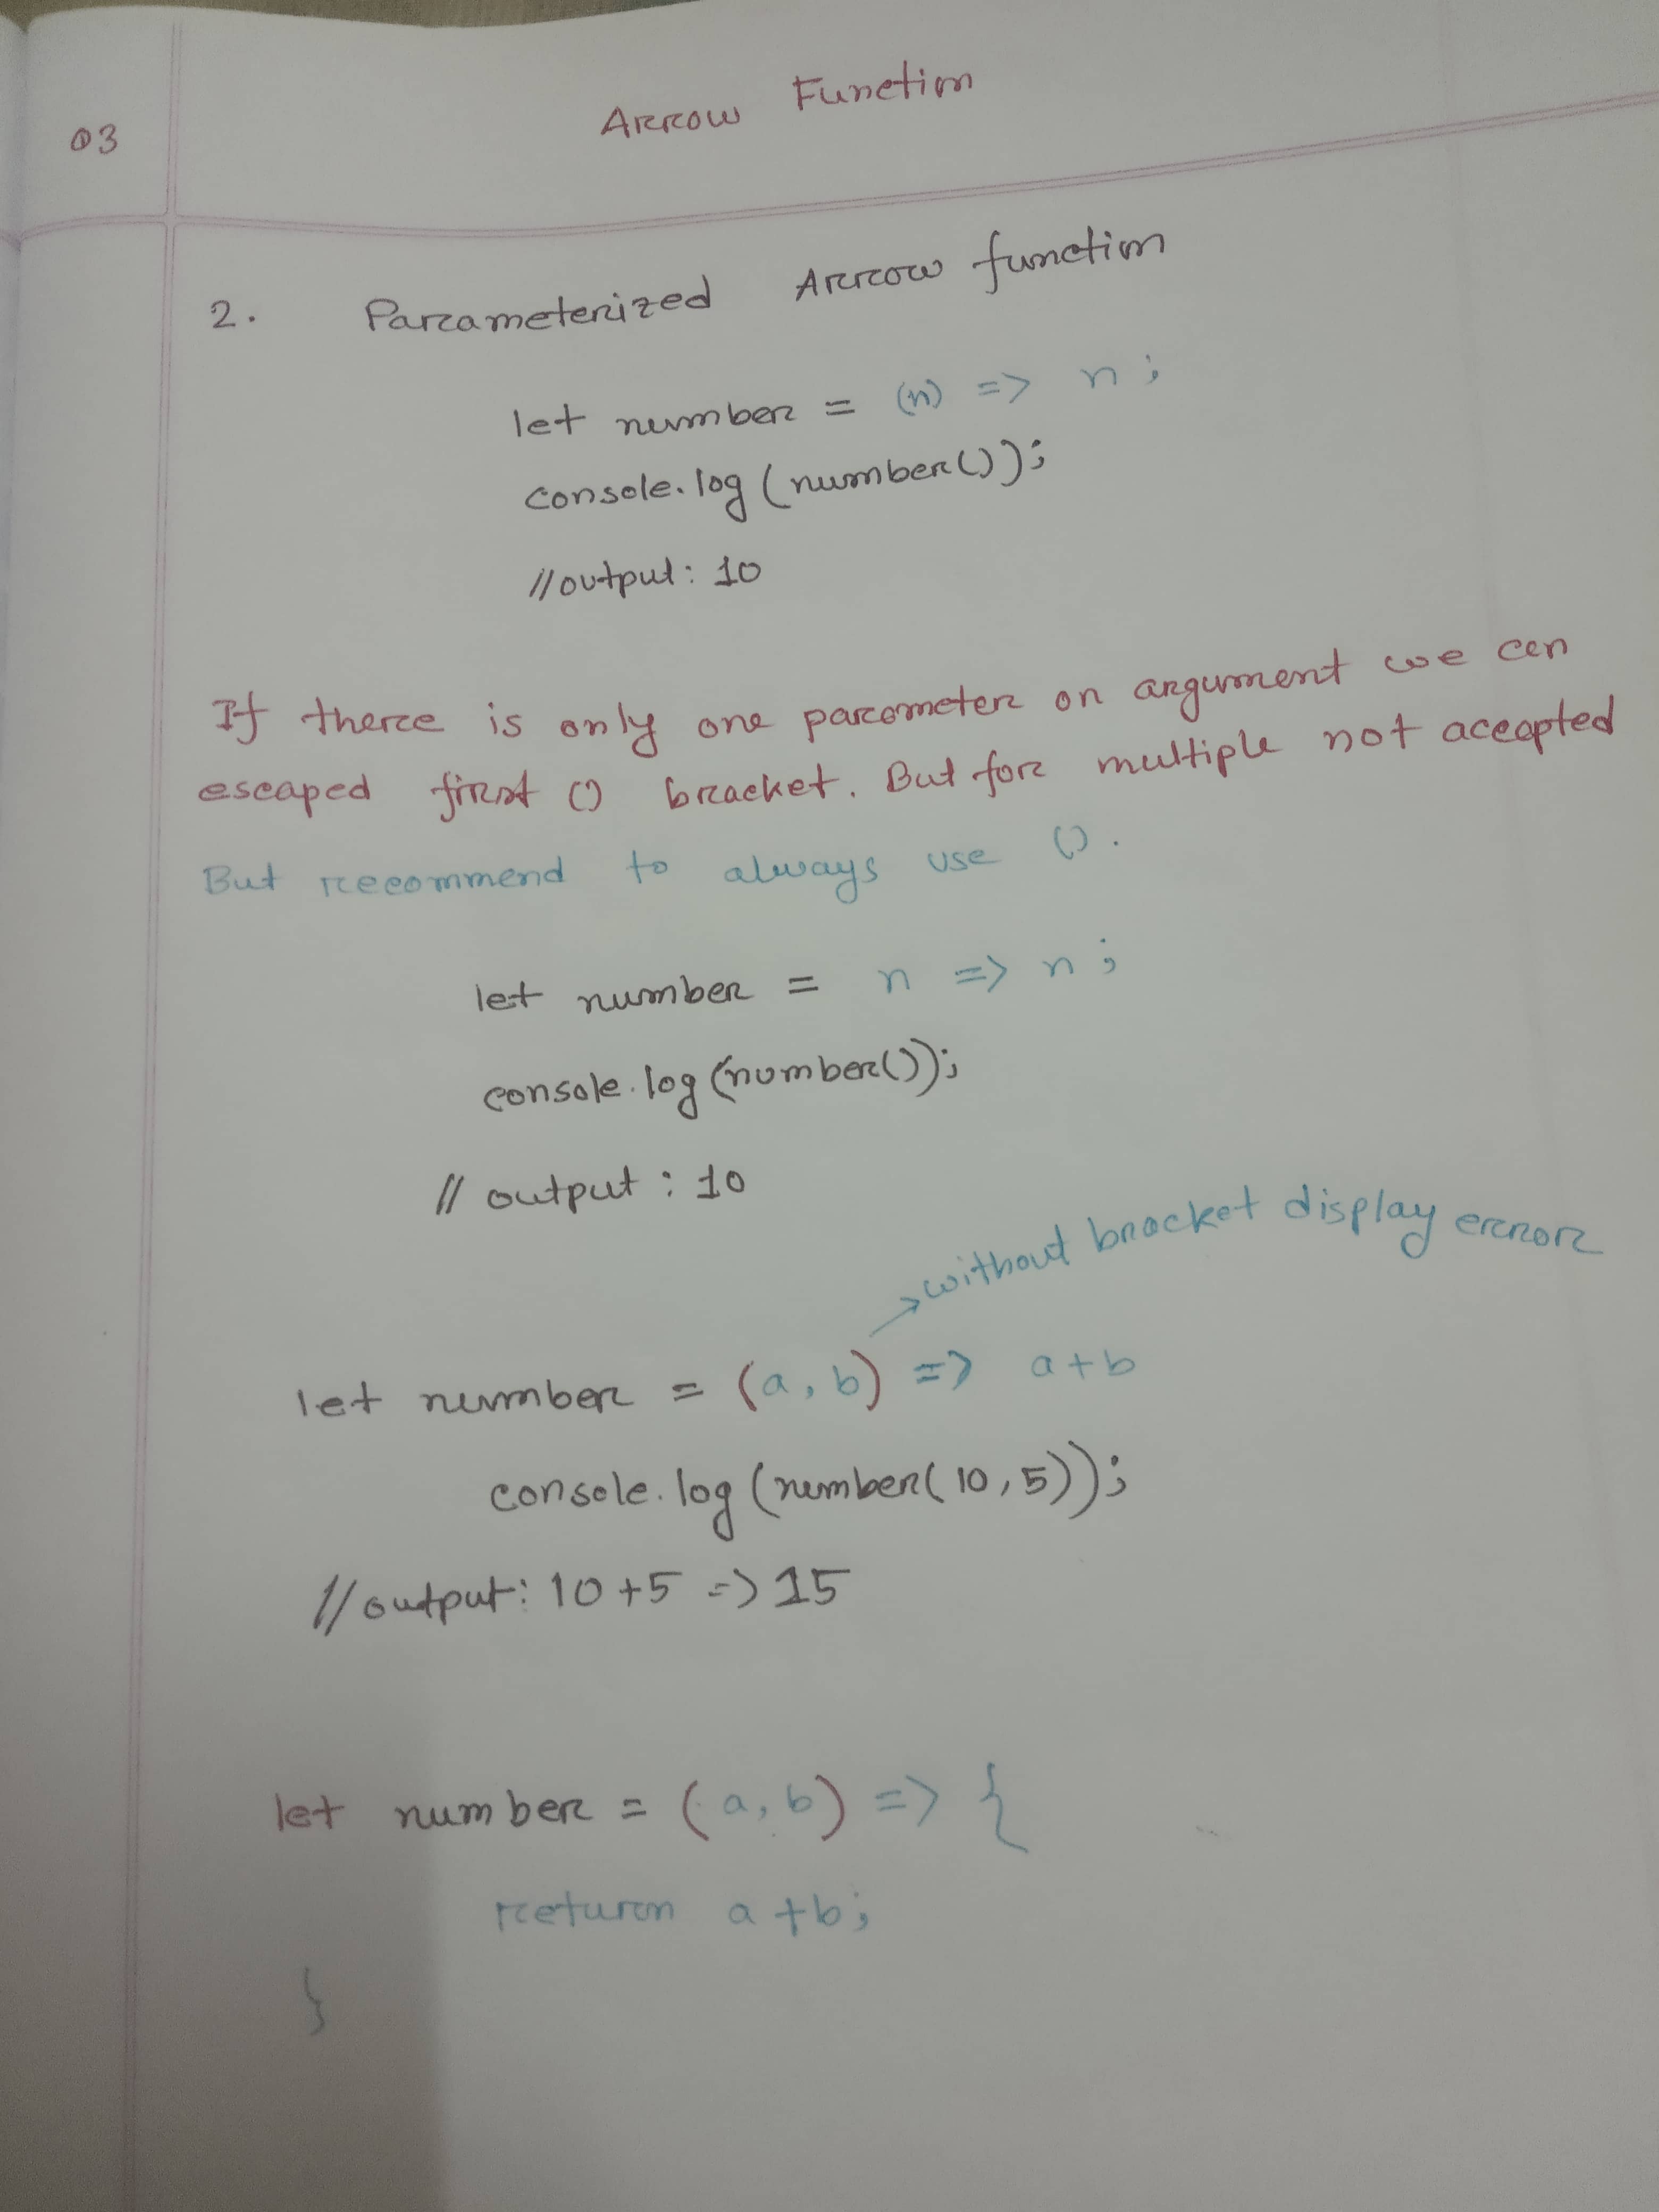 03
Arrow Function
2. Parameterized Arrow function
let number = (n) => n;
console.log(number());
//output: 10
If there is only one parameter or argument we can
escaped first () bracket. But for multiple not accepted
But recommend to always use ().
let number = n => n;
console.log(number());
// output : 10
without bracket display error
let number = (a, b) => a+b
console.log(number(10,5));
//output: 10+5 => 15
let number = (a, b) => {
return a+b;
}